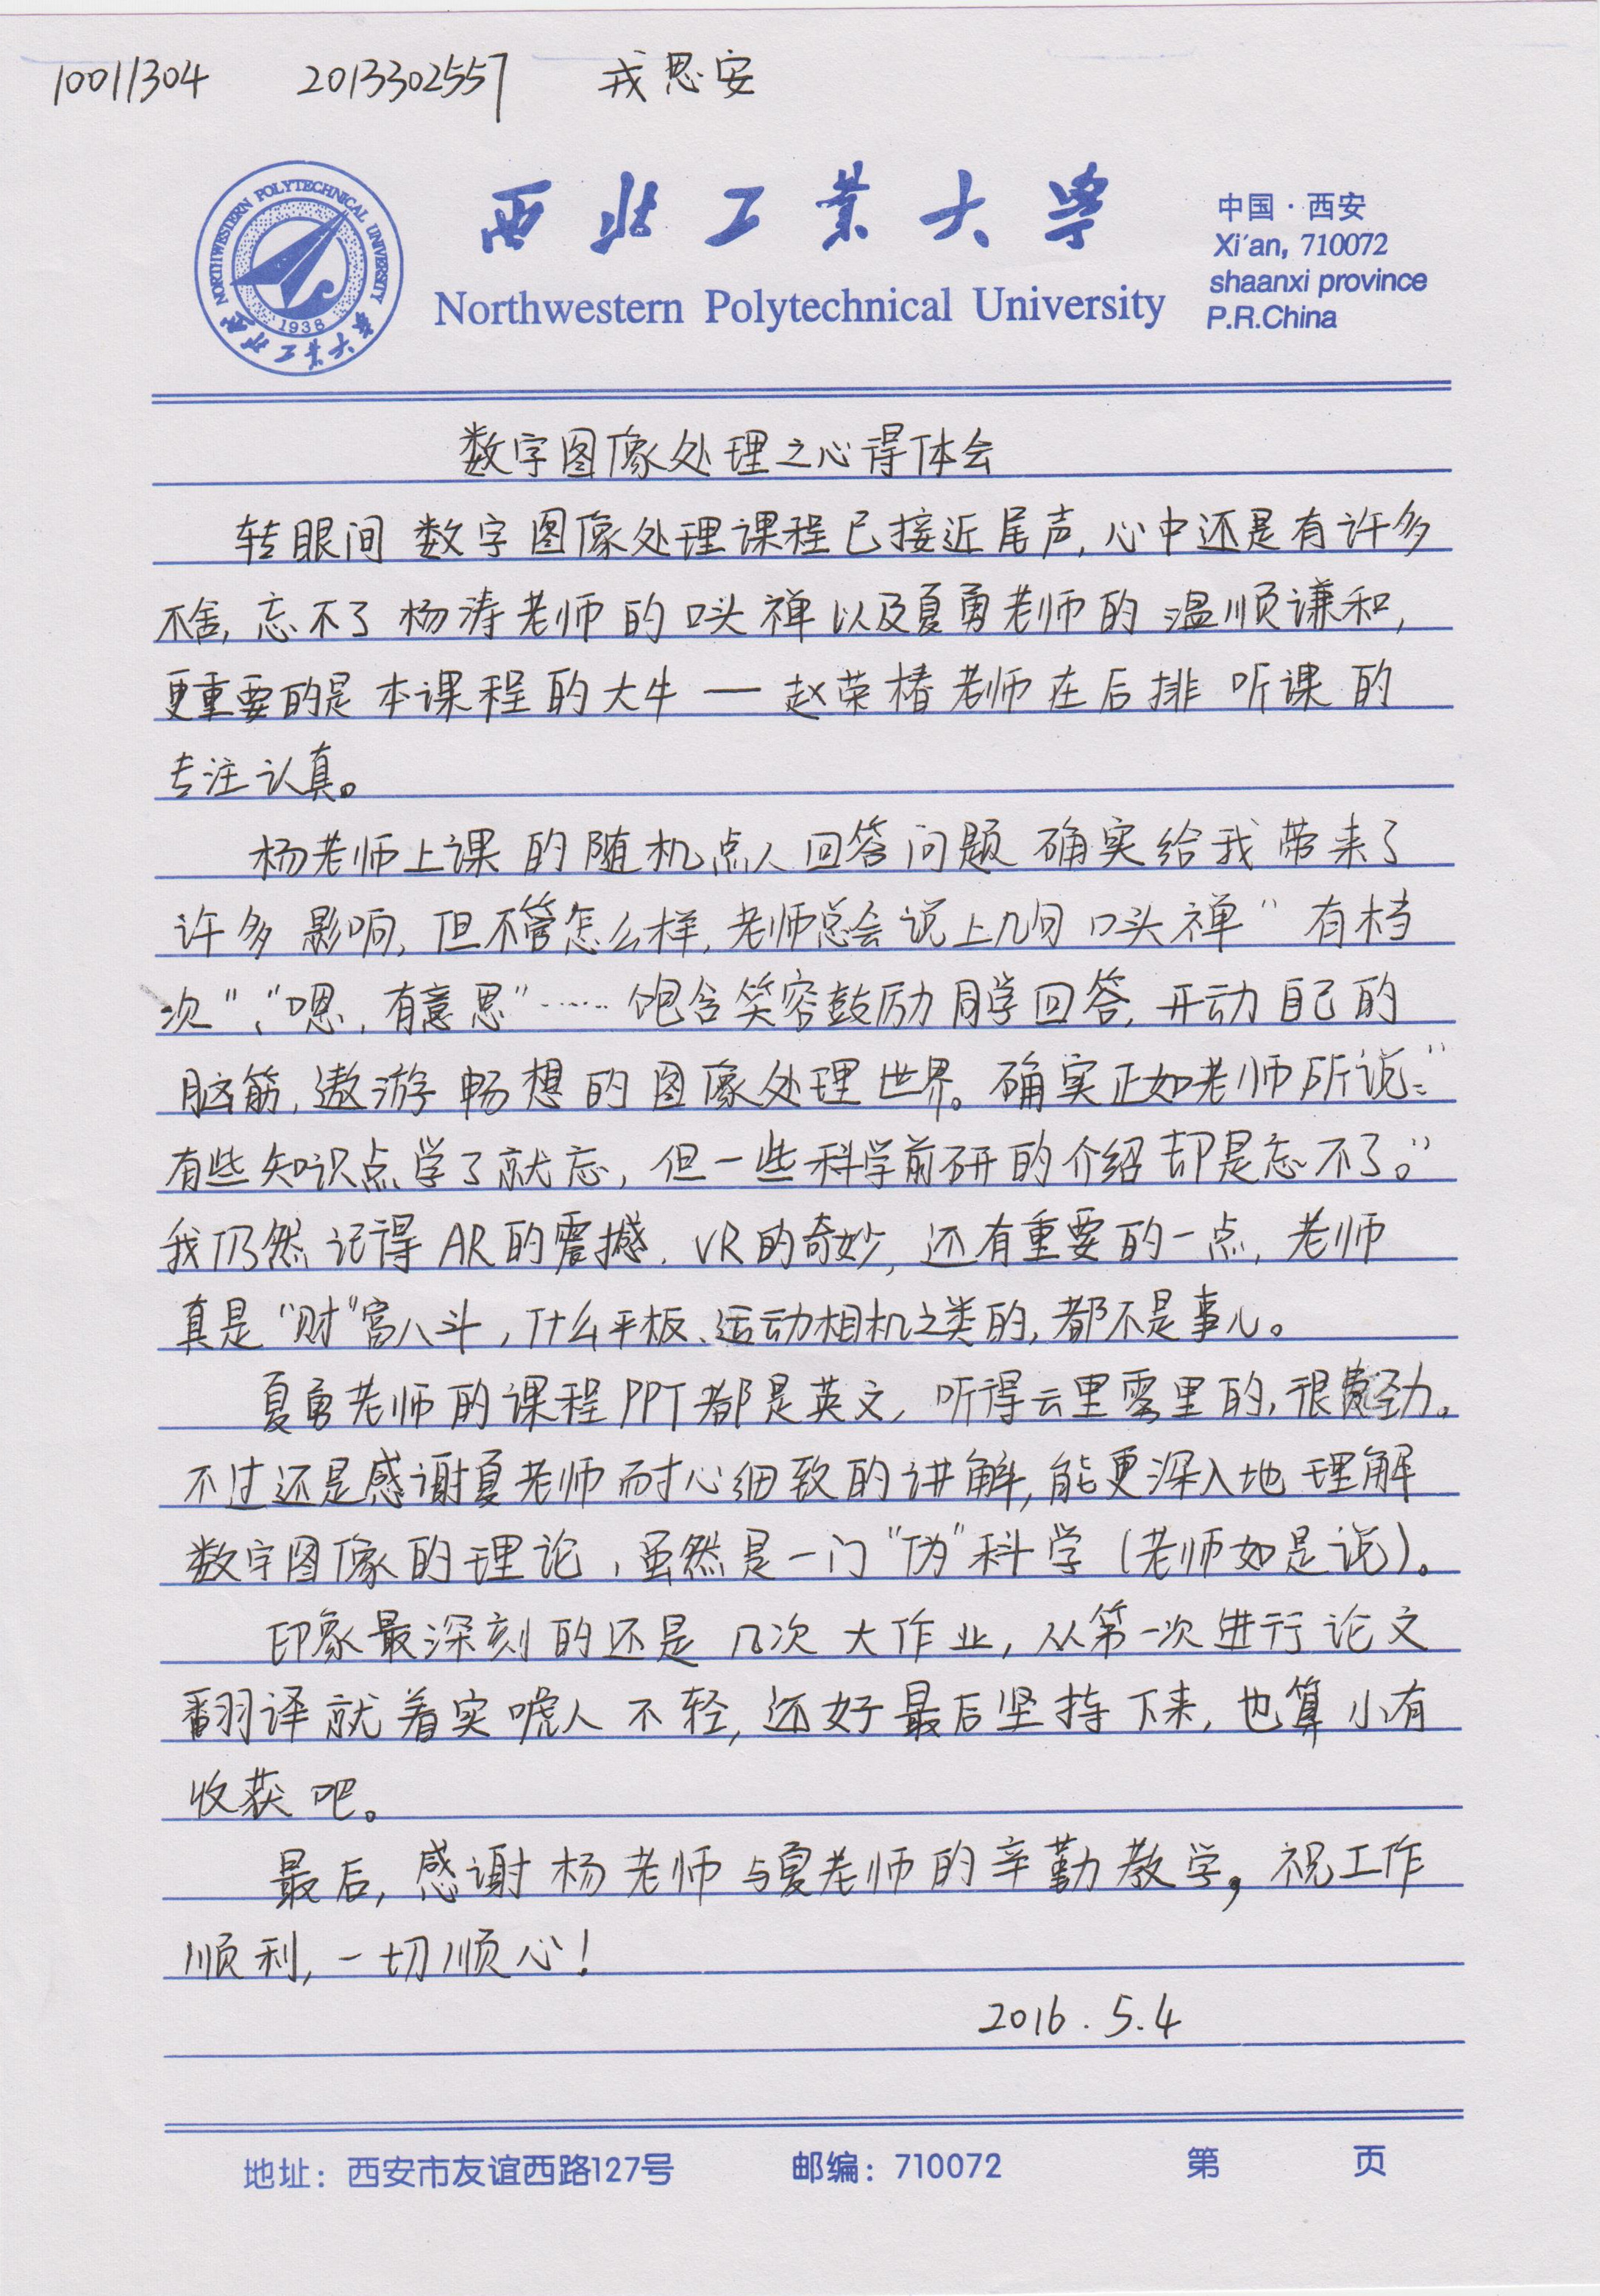 10011304 2013302557 戎思安
西北工业大学
Northwestern Polytechnical University
中国·西安
Xi'an, 710072
shaanxi province
P.R.China
NORTHWESTERN POLYTECHNICAL UNIVERSITY
1938
西北工业大学
数字图像处理之心得体会
转眼间数字图像处理课程已接近尾声,心中还是有许多
不舍,忘不了杨涛老师的口头禅以及夏勇老师的温顺谦和,
更重要的是本课程的大牛——赵荣椿老师在后排听课的
专注认真。
杨老师上课的随机点人回答问题确实给我带来了
许多影响,但不管怎么样,老师总会说上几句口头禅“有档
次”、“嗯,有意思”……饱含笑容鼓励同学回答,开动自己的
脑筋,遨游畅想的图像处理世界。确实正如老师所说:“
有些知识点学了就忘,但一些科学前研的介绍却是忘不了。”
我仍然记得AR的震撼、VR的奇妙,还有重要的一点,老师
真是“财”富八斗,什么平板、运动相机之类的,都不是事儿。
夏勇老师的课程PPT都是英文,听得云里雾里的,很费劲。
不过还是感谢夏老师耐心细致的讲解,能更深入地理解
数字图像的理论,虽然是一门“伪”科学(老师如是说)。
印象最深刻的还是几次大作业,从第一次进行论文
翻译就着实唬人不轻,还好最后坚持下来,也算小有
收获吧。
最后,感谢杨老师与夏老师的辛勤教学,祝工作
顺利,一切顺心!
2016.5.4
地址：西安市友谊西路127号 邮编：710072 第 页